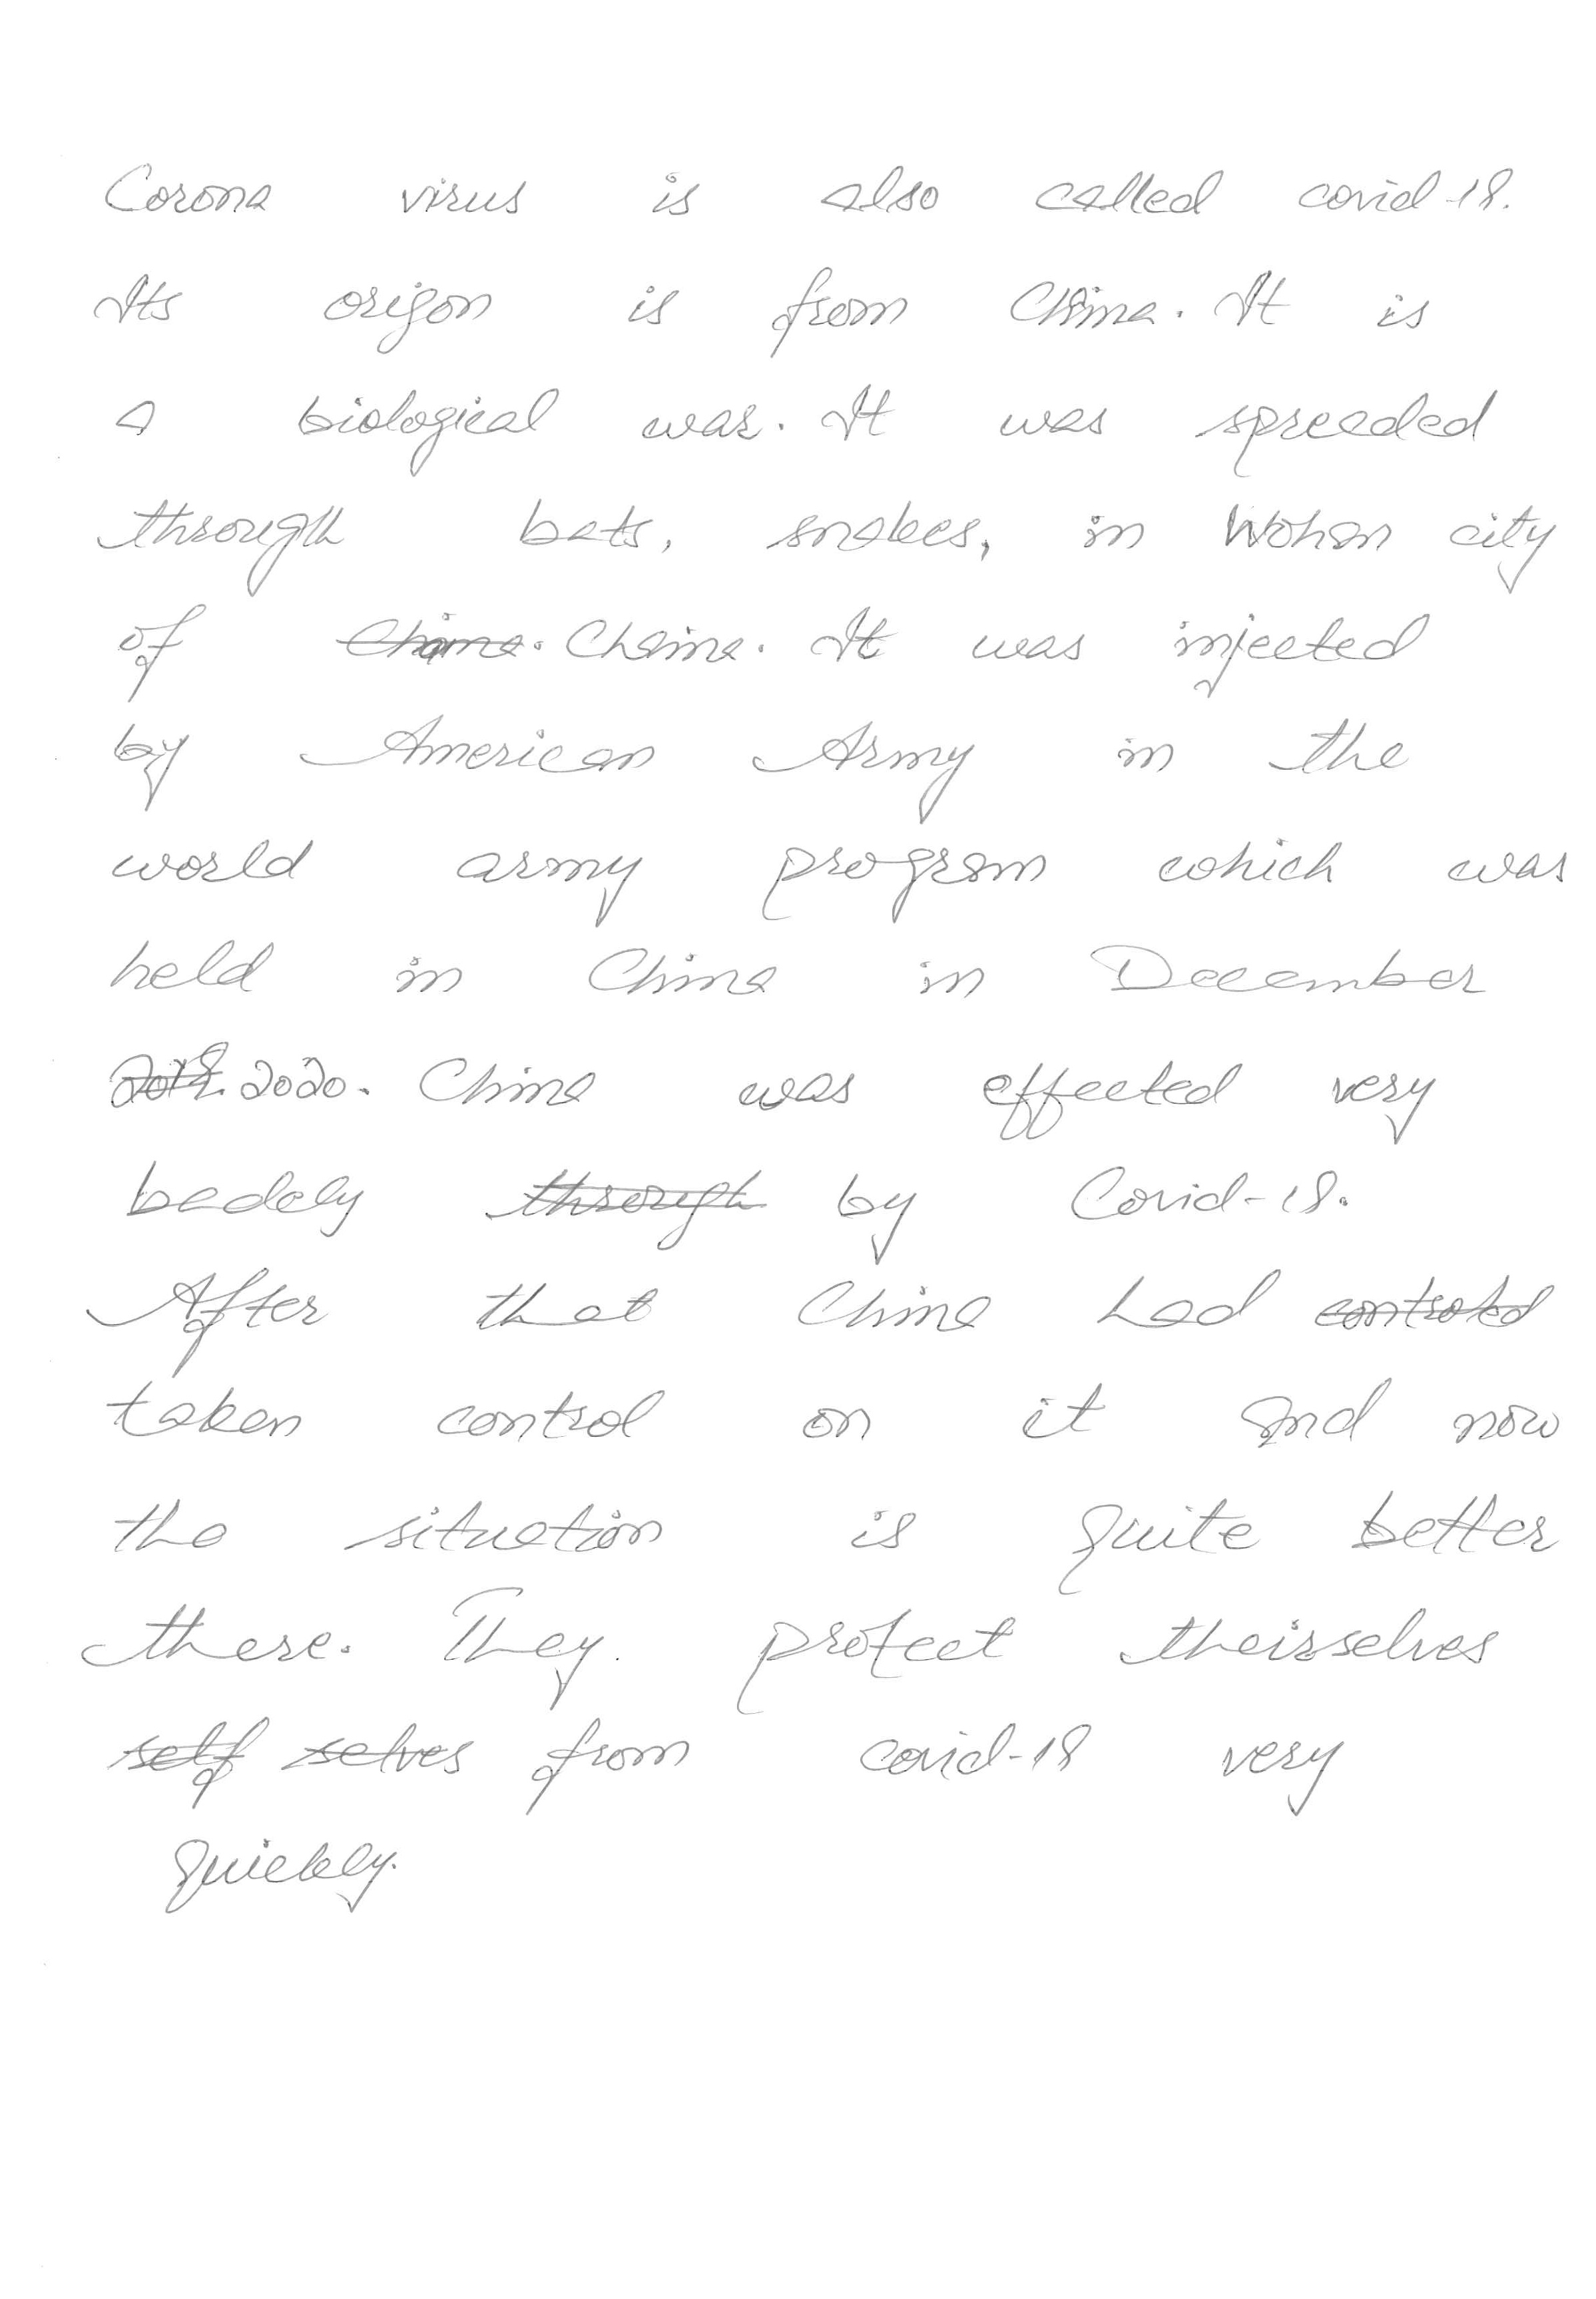 Corona virus is also called covid-18.
Its origon is from China. It is
a biological war. It was spreaded
through bats, snakes, in Wohan city
of China. Chaina. It was injected
by American Army in the
world army program which was
held in China in December
2019. 2020. China was effected very
badely through by Covid-18.
After that China had controled
taken control on it and now
the situation is quite better
there. They protect theirselves
self selves from covid-18 very
quickly.